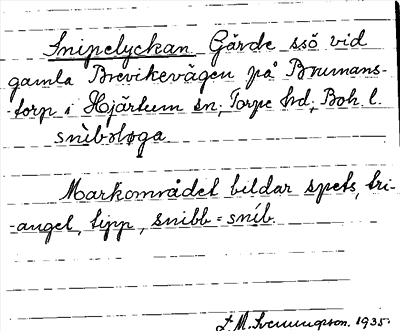 Snipelyckan Gärde ssö vid
gamla Brevikevägen på Brumans-
-torp i Hjärtum sn; Torpe hd; Boh. l.
Markområdet bildar spets, tri-
-angel, tipp, snibb = snib.
L. M. Svenungsson. 1935.